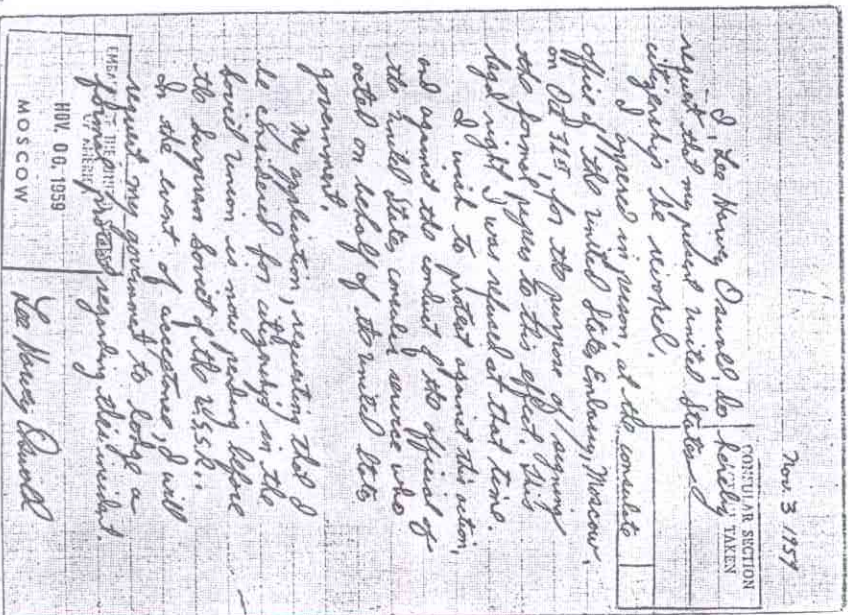 Nov. 3 1959
CONSULAR SECTION
TAKEN
I, Lee Harvey Oswald, do hereby
request that my present United States
citizenship be revoked.
I appered in person, at the consulate
office of the United States Embassy, Moscow,
on Oct 31st, for the purpose of signing
the formal papers to this effect. This
legal right I was refused at that time.
I wish to protest against this action,
and against the conduct of the official of
the United States consuler service who
acted on behalf of the United States
government.
My application, requesting that I
be considered for citizenship in the
Soviet Union is now pending before
the Surprem Soviet of the U.S.S.R..
In the event of acceptance, I will
request my government to lodge a
formal protest regarding this incident.
OF AMERICA
NOV. 06. 1959
MOSCOW
Lee Harvey Oswald